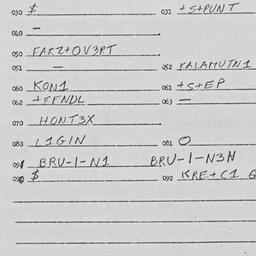 030 $ 031 +S+PUNT
040 —
050 FARZ+OV3RT
051 — 052 KALAMUTN1
060 KON1 061 +S+EP
062 +KENDL 063 —
070 HONT3X
080 L1GIN 081 O
091 BRU-1-N1 BRU-1-N3H
090 $ 092 KRE+C1